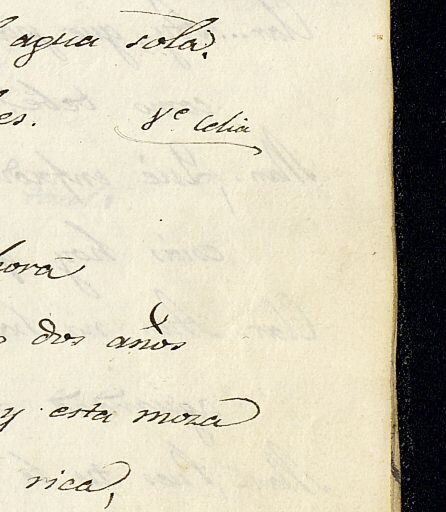 agua sola.
es. Vᵉ Celia
hora
dos años
y esta moza
rica,